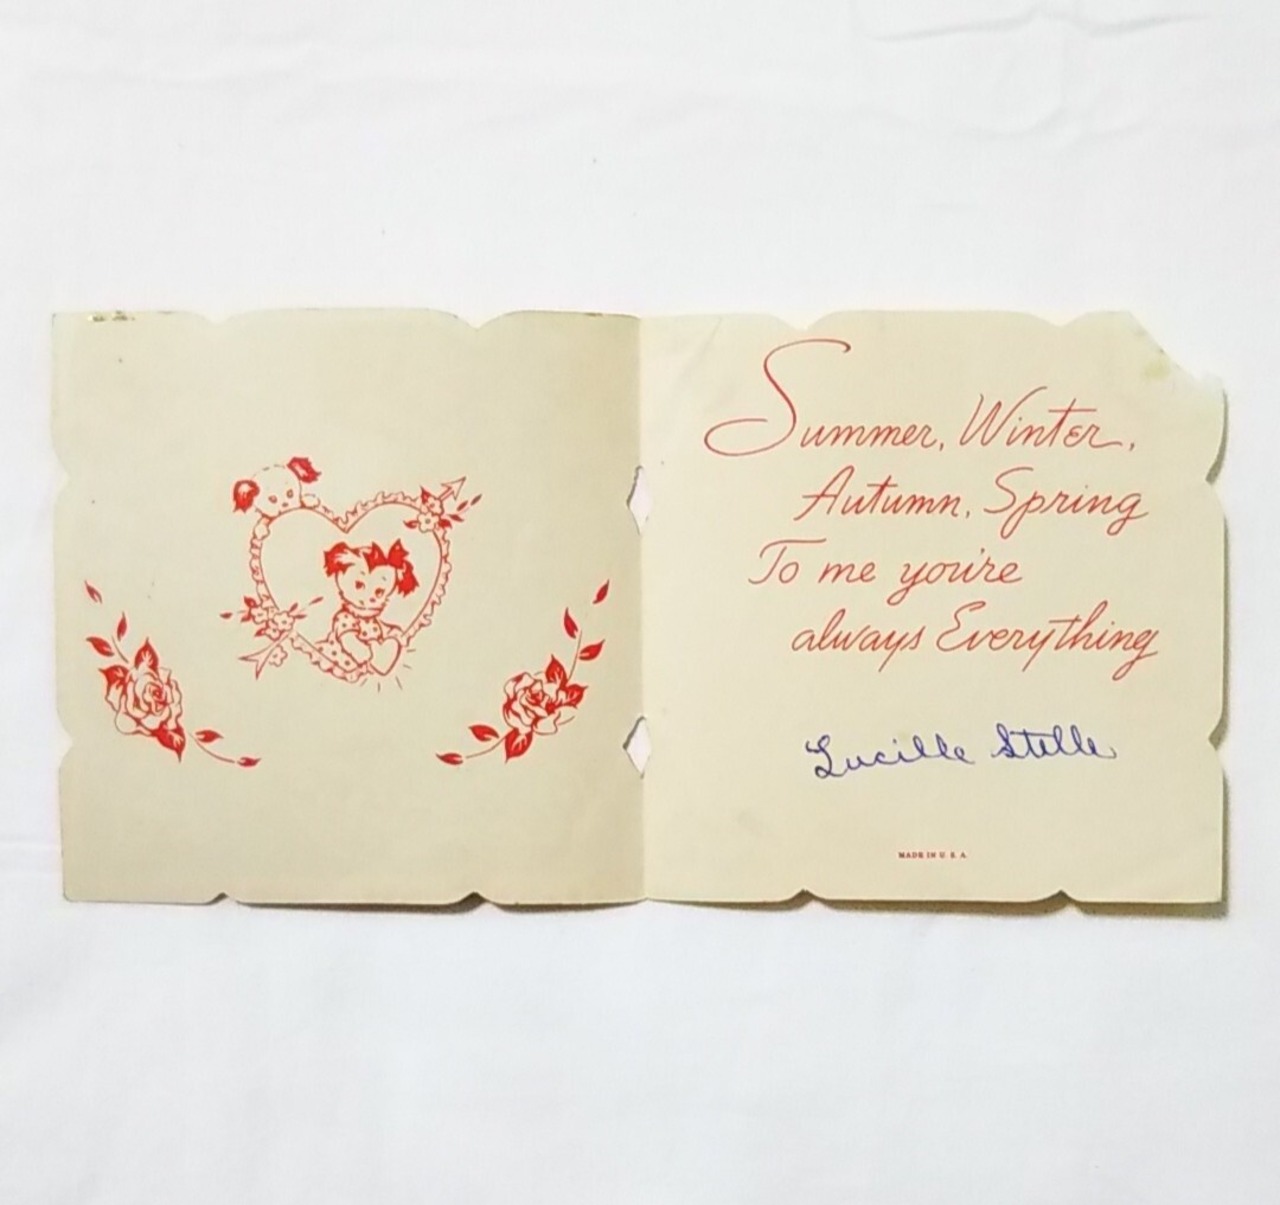 Summer, Winter,
Autumn, Spring
To me you're
always Everything
Lucille Stelle
MADE IN U. S. A.